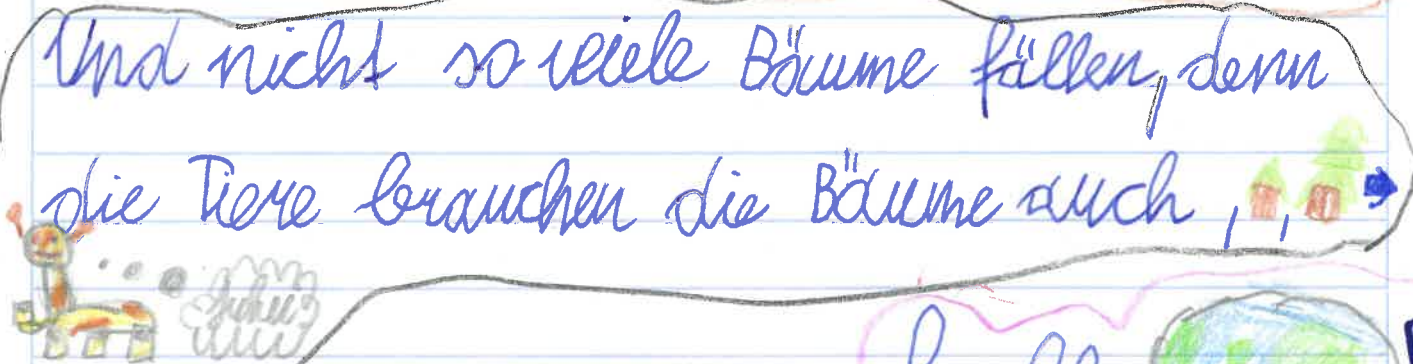 Und nicht so veiele Bäume fällen, denn
die Tiere brauchen die Bäume auch , ,